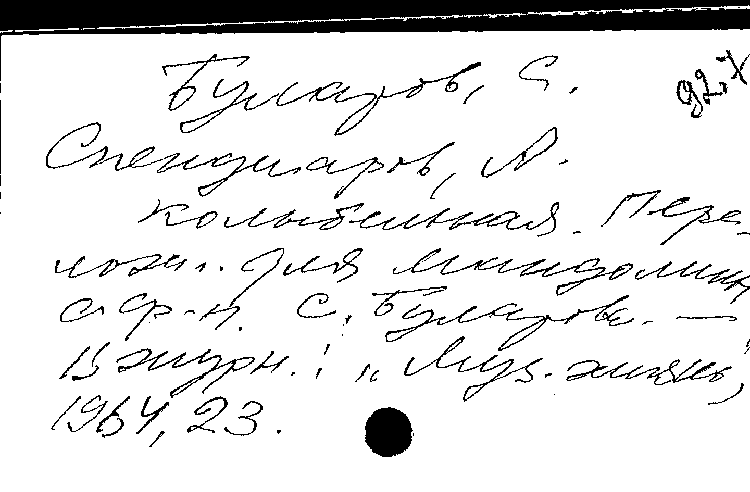 Булгаров, С.
92,7
Спендиаров, А.
Колыбельная. Пере-
лож. для мандолины
с ф-п. С. Булгарова. —
В журн.: „Муз. жизнь",
1964, 23.